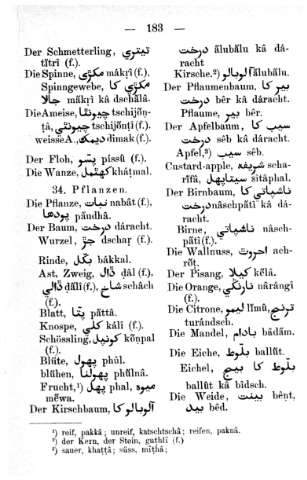 — 183 —
Der Schmetterling, تیتری
tītrī (f.).
Die Spinne, مکڑی mākṛī (f.).
Spinngewebe, مکڑی کا
جالا mākṛī kā dschālā.
Die Ameise, چیونٹا tschijōṇ-
ṭā, چیونٹی tschijōṇṭī (f.).
weisse A., دیمک dīmak (f.).
Der Floh, پسو pissū (f.).
Die Wanze, کھٹمل khátmal.
34. Pflanzen.
Die Pflanze, نبات nabāt (f.),
پودھا páudhā.
Der Baum, درخت dáracht.
Wurzel, جڑ dschaṛ (f.).
Rinde, بکل bákkal.
Ast, Zweig, ڈال ḍāl (f.),
ڈالی ḍālī (f.), شاخ schāch
(f.).
Blatt, پتا páttā.
Knospe, کلی kálī (f.).
Schössling, کونپل kōnpal
(f.).
Blüte, پھول phūl.
blühen, پھولنا phūlnā.
Frucht,¹) پھل phal, میوه
mēwa.
Der Kirschbaum, آلوبالو کا
درخت ālubālu kā dá-
racht
Kirsche,²) آلوبالو ālubālu.
Der Pflaumenbaum, بیر کا
درخت bēr kā dáracht.
Pflaume, بیر bēr.
Der Apfelbaum, سیب کا
درخت sēb kā dáracht.
Apfel,³) سیب sēb.
Custard-apple, شریفه scha-
rīfā, سیتاپھل sītāphal.
Der Birnbaum, ناشپاتی کا
درخت nāschpātī kā dá-
racht.
Birne, ناشپاتی nāsch-
pātī (f.).
Die Wallnuss, اخروت ach-
rōṭ.
Der Pisang, کیلا kēlā.
Die Orange, نارنگی nārángī
(f.).
Die Citrone, لیمو līmū, ترنج
turándsch.
Die Mandel, بادام bādām.
Die Eiche, بلوط ballūt.
Eichel, بلوط کا بیج
ballūt kā bīdsch.
Die Weide, بینت bēnt,
بید bēd.
¹) reif, pakkā; unreif, katschtschā; reifen, paknā.
²) der Kern, der Stein, guthlī (f.)
³) sauer, khaṭṭā; süss, mīṭhā;